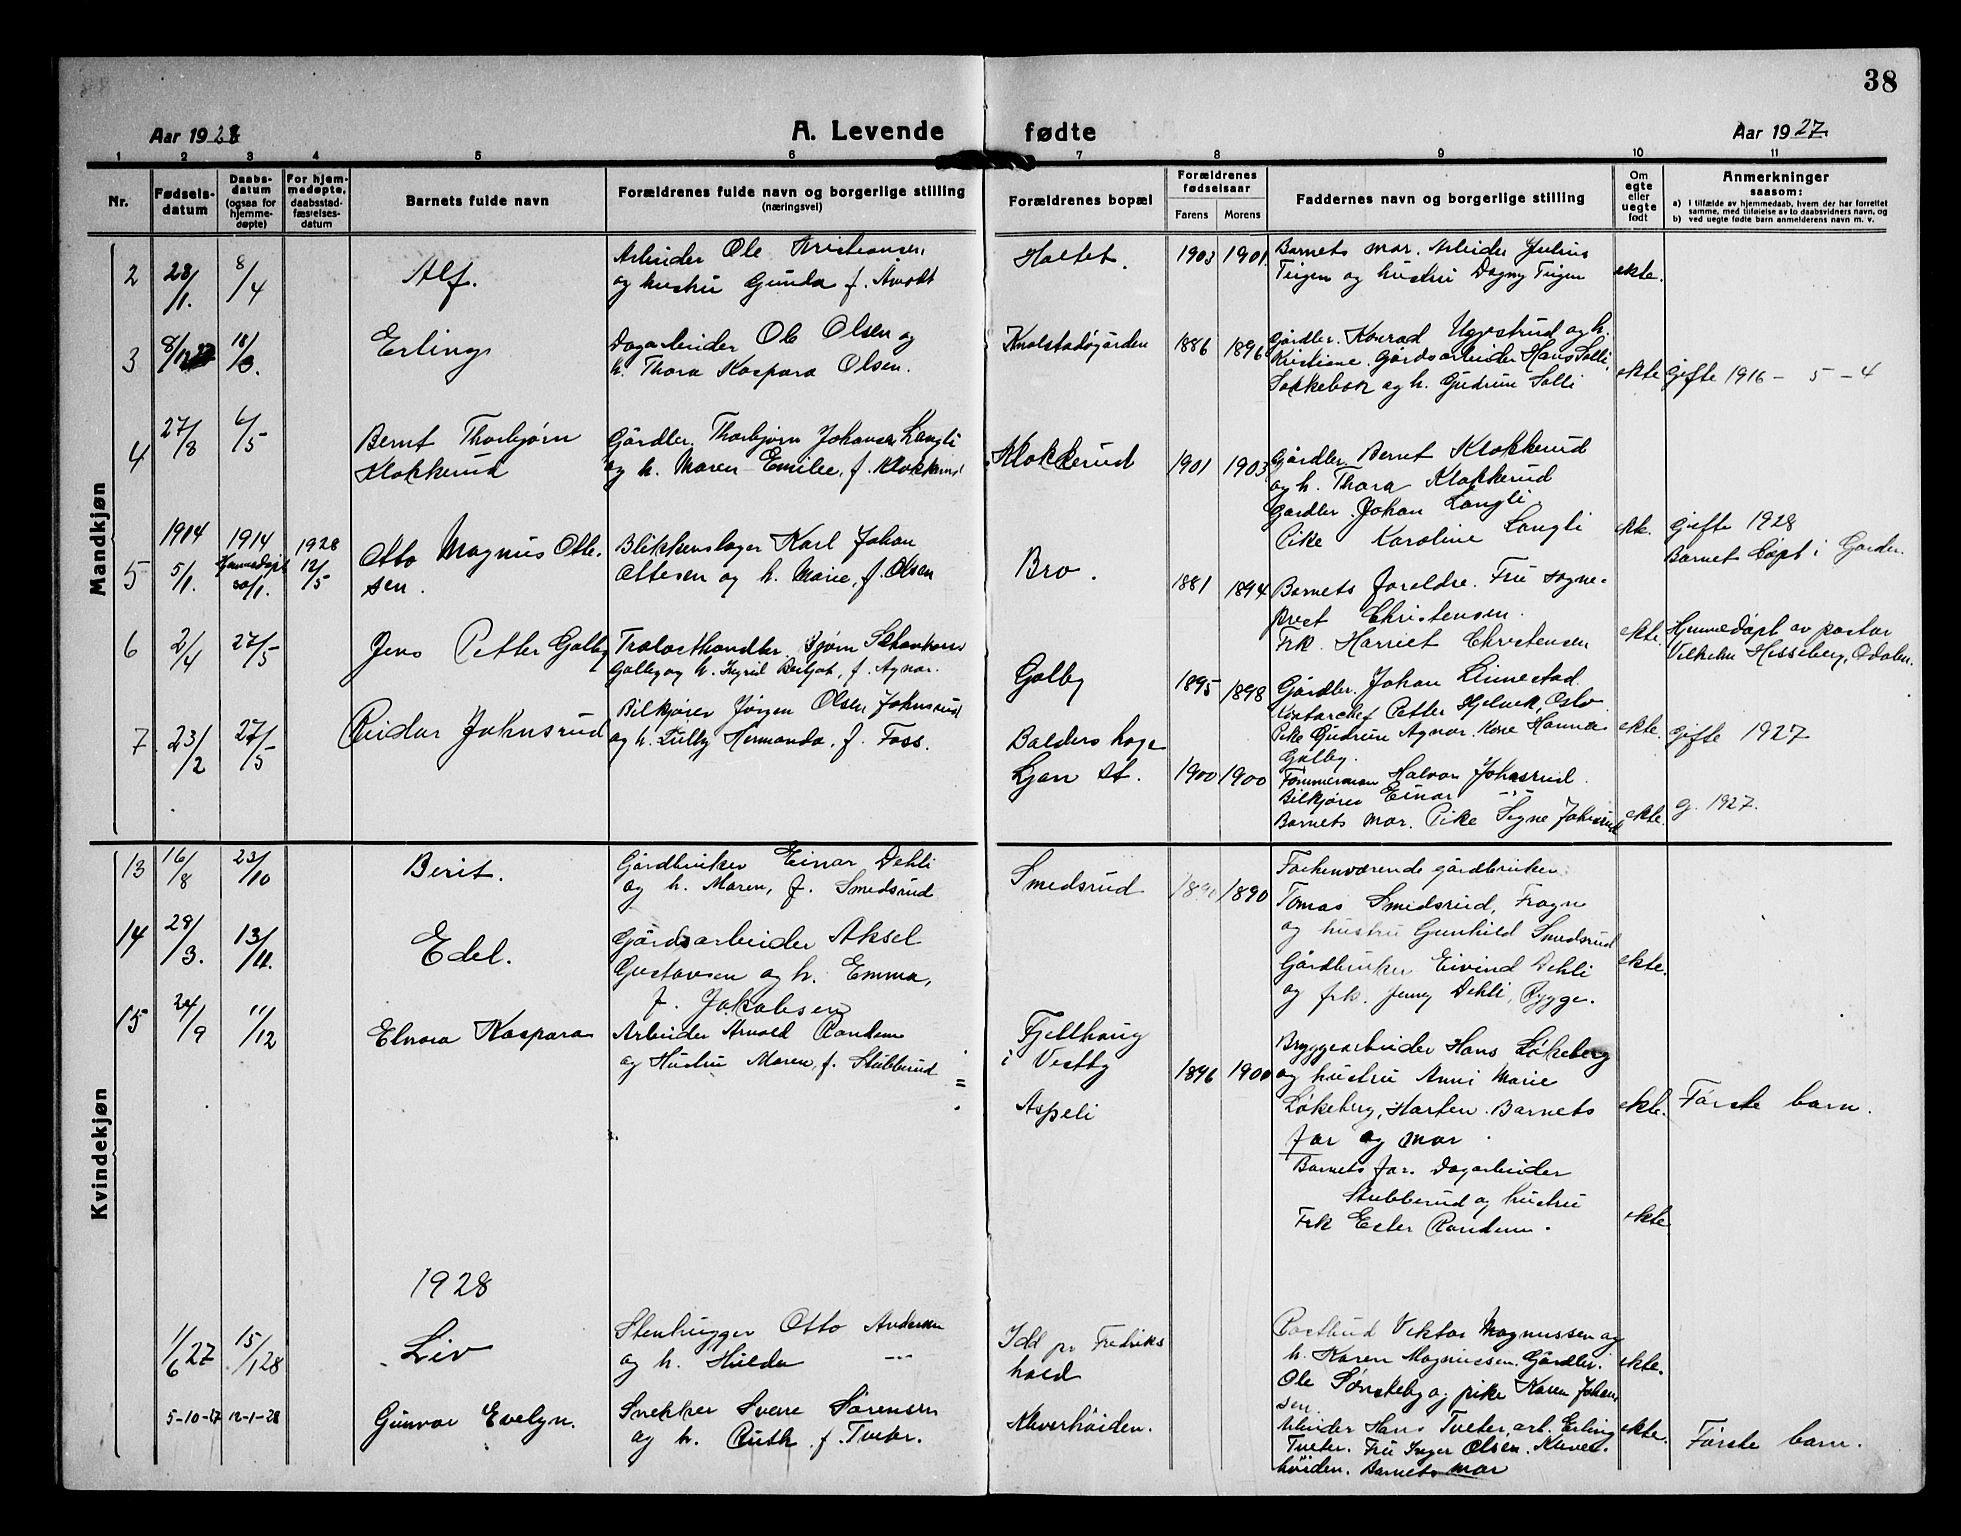 38
Aar 1928
A. Levende fødte
Aar 1927
1 2 3 4 5 6 7 8 9 10 11
Nr.
Fødsels-
datum
Daabs-
datum
(ogsaa for
hjemme-
døpte)
For hjem-
medøpte,
daabsstad-
fæstelses-
datum
Barnets fulde navn
Forældrenes fulde navn og borgerlige stilling
(næringsvei)
Forældrenes bopæl
Forældrenes
fødselsaar
Farens
Morens
Faddernes navn og borgerlige stilling
Om
egte
eller
uegte
født
Anmerkninger
saasom:
a) i tilfælde av hjemmedaab, hvem der har forrettet
samme, med tilføielse av to daabsvidners navn, og
b) ved uegte fødte barn anmelderens navn m. v.
Mandkjøn
2 28/1. 8/4 Alf.
Arbeider Ole Kristiansen
og hustru Gunda f.
Holtet. 1903 1901.
Barnets mor. Arbeider Julius
Teigen og hustru Dagny Teigen
ekte.
3 8/12 27 18/3. Erling
Dagarbeider Ole Olsen og
h. Thora Kaspara Olsen.
Knalstadgården 1886 1896
Gårdbr. Konrad Uggestrud og h.
Kristiane. Gårdsarbeider Hans Solli,
og h. Gudrun Solli
ekte Gifte 1916 - 5 - 4
4 27/8 6/5 Bernt Thorbjørn
Klokkerud
Gårdbr. Thorbjørn Johansen Langli
og h. Maren Emilie, f. Klokkerud
Klokkerud 1901 1903
Gårdbr. Bernt Klokkerud
og h. Thora Klokkerud
Gårdbr. Johan Langli
Pike Karoline Langli
ekte. Gifte 1928
Barnet døpt i Garder.
5 1914 5/1. 1914 Hjemmedøpt 30/1. 1928 12/5
Otto Magnus Otte-
sen.
Blikkenslager Karl Johan
Ottesen og h. Marie, f. Olsen
Bro. 1881 1894
Barnets foreldre. Fru sogne-
prest Christensen.
Frk. Harriet Christensen
ekte. Hjemmedøpt av pastor
Vilhelm Hesseberg, Odalen.
6 2/4 27/5 Jens Petter Galby
Trelasthandler Bjørn
Galby og h. Ingrid f. Agnor.
Galby 1895 1898
Gårdbr. Johan Linnestad
Kontorchef Petter Oslo
Pike Gudrun Agnor. Kone Hanna
Galby.
ekte. Gifte 1927
7 23/2 27/5 Reidar Johnsrud
Bilkjører Jørgen Olsen Johnsrud
og h. Lully Hermanda, f. Foss.
Balders hage
Ljan st. 1900 1900
Tømmermann Halvor Johnsrud
Bilkjører Einar -"-
Barnets mor. Pike Signe Johnsrud
ekte. g. 1927.
Kvindekjøn
13 16/8 23/10 Berit.
Gårdbruker Einar Dehli
og h. Maren, f. Smedsrud
Smedsrud 1890 1890
Forhenværende gårdbruker
Tomas Smedsrud, Frogn
og hustru Gunhild Smedsrud
Gårdbruker Eivind Dehli
og frk. Jenny Dehli, Rygge.
ekte.
14 29/3. 13/11. Edel.
Gårdsarbeider Aksel
Gustavsen og h. Emma,
f. Jakobsen
Fjellhaug
i Vestby 1896 1900
Bryggearbeider Hans Løkeberg
og hustru Anni Marie
Løkeberg, Horten. Barnets
far og mor.
ekte. Første barn.
15 24/9 11/12 Elnora Kaspara
Arbeider Arnold Randem
og Hustru Maren, f. Stubberud
Aspeli
Barnets far. Dagarbeider
Stubberud og hustru
Frk Ester Randem.
ekte
1928
1/6 27 15/1 28 Liv
Stenhugger Otto Andersen
og h. Hulda -"-
Idd pr Fredriks
hald
Postbud Viktor Magnussen og
h. Karen Magnussen. Gårdbr.
Ole Sønsteby og pike Karen Johan
sen.
ekte.
5-10-27 12-1-28 Gunvor Evelyn.
Snekker Sverre Sørensen
og h. Ruth f. Tveter.
Kleverhöiden.
Arbeider Hans Tveter, arb. Erling
Tveter. Fru Inger Olsen. Klever-
höiden. Barnets mor
ekte. Første barn.